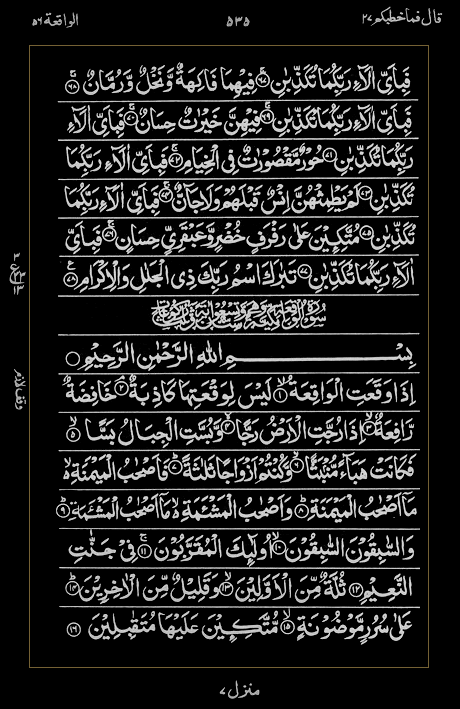 قال فما خطبكم ٢٧
٥٣٥
الواقعة ٥٦
فَبِاَىِّ اٰلَآءِ رَبِّكُمَا تُكَذِّبٰنِ ﴿٦٧﴾ فِيْهِمَا فَاكِهَةٌ وَّنَخْلٌ وَّرُمَّانٌ ﴿٦٨﴾
فَبِاَىِّ اٰلَآءِ رَبِّكُمَا تُكَذِّبٰنِ ﴿٦٩﴾ فِيْهِنَّ خَيْرٰتٌ حِسَانٌ ﴿٧٠﴾ فَبِاَىِّ اٰلَآءِ
رَبِّكُمَا تُكَذِّبٰنِ ﴿٧١﴾ حُوْرٌ مَّقْصُوْرٰتٌ فِى الْخِيَامِ ﴿٧٢﴾ فَبِاَىِّ اٰلَآءِ رَبِّكُمَا
تُكَذِّبٰنِ ﴿٧٣﴾ لَمْ يَطْمِثْهُنَّ اِنْسٌ قَبْلَهُمْ وَلَا جَآنٌّ ﴿٧٤﴾ فَبِاَىِّ اٰلَآءِ رَبِّكُمَا
تُكَذِّبٰنِ ﴿٧٥﴾ مُتَّكِـِٕيْنَ عَلٰى رَفْرَفٍ خُضْرٍ وَّعَبْقَرِىٍّ حِسَانٍ ﴿٧٦﴾ فَبِاَىِّ
اٰلَآءِ رَبِّكُمَا تُكَذِّبٰنِ ﴿٧٧﴾ تَبٰرَكَ اسْمُ رَبِّكَ ذِى الْجَلٰلِ وَالْاِكْرَامِ ﴿٧٨﴾
بِسْمِ اللهِ الرَّحْمٰنِ الرَّحِيْمِ
اِذَا وَقَعَتِ الْوَاقِعَةُ ﴿١﴾ لَيْسَ لِوَقْعَتِهَا كَاذِبَةٌ ﴿٢﴾ خَافِضَةٌ
رَّافِعَةٌ ﴿٣﴾ اِذَا رُجَّتِ الْاَرْضُ رَجًّا ﴿٤﴾ وَّبُسَّتِ الْجِبَالُ بَسًّا ﴿٥﴾
فَكَانَتْ هَبَآءً مُّنْۢبَثًّا ﴿٦﴾ وَّكُنْتُمْ اَزْوَاجًا ثَلٰثَةً ﴿٧﴾ فَاَصْحٰبُ الْمَيْمَنَةِ
مَآ اَصْحٰبُ الْمَيْمَنَةِ ﴿٨﴾ وَاَصْحٰبُ الْمَشْـَٔمَةِ مَآ اَصْحٰبُ الْمَشْـَٔمَةِ ﴿٩﴾
وَالسّٰبِقُوْنَ السّٰبِقُوْنَ ﴿١٠﴾ اُولٰٓئِكَ الْمُقَرَّبُوْنَ ﴿١١﴾ فِىْ جَنّٰتِ
النَّعِيْمِ ﴿١٢﴾ ثُلَّةٌ مِّنَ الْاَوَّلِيْنَ ﴿١٣﴾ وَقَلِيْلٌ مِّنَ الْاٰخِرِيْنَ ﴿١٤﴾
عَلٰى سُرُرٍ مَّوْضُوْنَةٍ ﴿١٥﴾ مُّتَّكِـِٕيْنَ عَلَيْهَا مُتَقٰبِلِيْنَ ﴿١٦﴾
منزل ٧